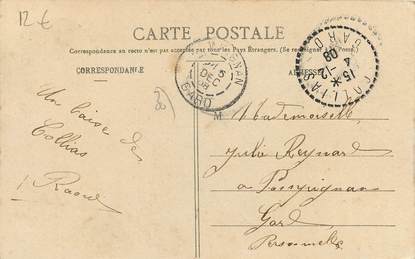 12 €
CARTE POSTALE
Correspondance au recto n'est pas acceptée par tous les Pays Étrangers. (Se renseigner à la Poste).
CORRESPONDANCE
ADRESSE
15 DEC 08
GARD
COLLIAS
15 -12 08
GARD
Un baiser de
Collias
Raoul
M
Mademoiselle
Julie Reynard
a
Gard
Personnelle